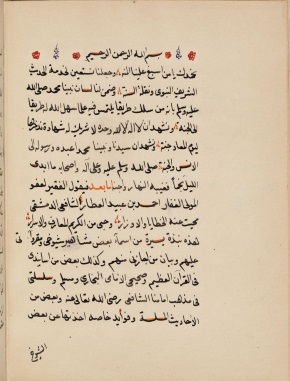 بسم الله الرحمن الرحيم
نحمدك يا من اسبغ علينا الآئه وجعلنا مستعين لخدمة الحديث
الشريف النبوي ونقلة السنة ونحن بلسان نبينا محمد صلى الله
عليه وسلم بانه من سلك طريقا يلتمس فيه علما سهل الله له طريقا
الى الجنة ونشهد ان لا اله الا الله وحده لا شريك له شهادة ندخرها
ليوم الموازنة ونشهد ان سيدنا ونبينا محمدا عبده ورسوله الى
الانس والجنة صلى الله وسلم عليه وعلى آله واصحابه ما ابدى
الليل نجما وغيبه النهار وجنه اما بعد فيقول الفقير لعفو
المولى الغفار احمد بن عبيد العطار الشافعي الدمشقي
محيت عنه الخطايا والاوزار وحمي من الكريم
هذه نبذة يسيرة من اسماء بعض مشائخي ممن قرأ
عليهم وبيان من اجازني منهم وكذلك بعض من اسانيدي
في القرآن العظيم وصحيحي الامامين البخاري ومسلم وسلسلتي
في مذهب امامنا الشافعي رضي الله تعالى عنه وبعض من
الاحاديث المسلسلة وفوايد خاصه اخذتها عن بعض
الشيوخ